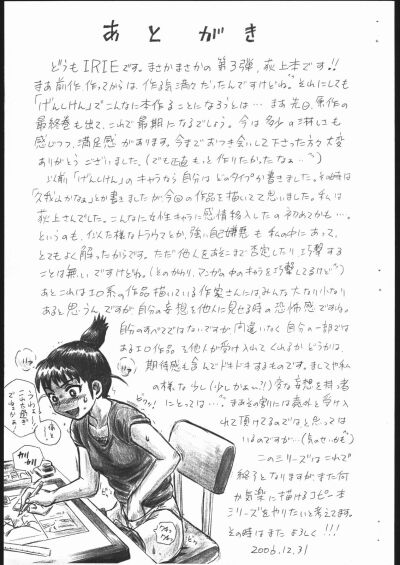 あとがき
どうもIRIEです。まさかまさかの第3弾、荻上本です!!
まあ前作作ってからは、作る気満々だったんですけどね。それにしても
「げんしけん」でこんなに本作ることになろうとは… まあ先日、原作の
最終巻も出て、これで最期になるでしょう。今は多少の淋しさも
感じつつ、満足感があります。今までおつき合いして下さった方々大変
ありがとうございました。(でも正直もっと作りたかったなぁ…)
以前「げんしけん」のキャラなら自分はどのタイプか書きました。その時は
「久我山かなぁ」とか書きましたが今回の作品を描いてて思いました。私は
荻上さんでした。こんなに女性キャラに感情移入したの初めてかも…。
というのも、似た様なトラウマとか、強い自己嫌悪も私の中にあって、
とてもよく解ったからです。ただ他人をあそこまで否定したり、攻撃する
ことは無いですけどね。(とのがり、マンガの中のキャラを攻撃してるけど)
あとこれはエロ系の作品描いている作家さんにはみんな大なり小なり
あると思うんですが、自分の妄想を他人に見せる時の恐怖感ですね。
自分のすべてではないですが、間違いなく自分の一部では
あるエロ作品を他人が受け入れてくれるかどうかは、
期待感も含んでドキドキするものです。ましてや私
の様な少し(少しかよ!?)変な妄想を持つ者
にとっては…。まあその割には意外と受け入
れて頂けてるのではと思っては
いるのですが…(気のせいかも)
このシリーズはこれで
終了となりますが、また何
か気楽に描けるコピー本
シリーズをやりたいと考えてます。
その時はまたよろしく!!!
2006.12.31